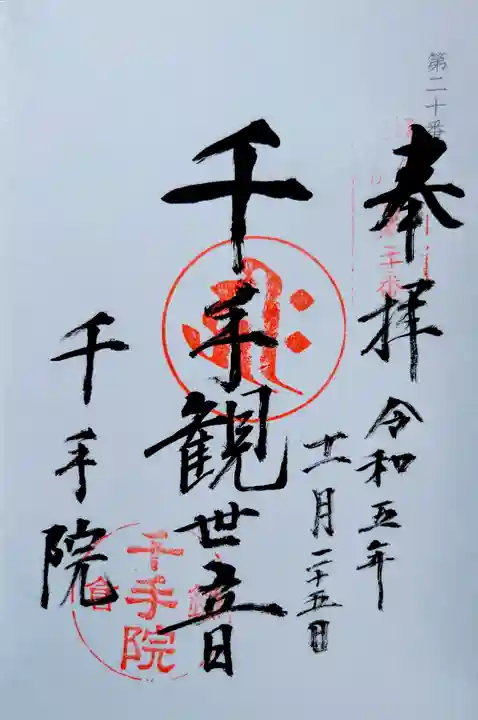 第二十番
奉拝
令和五年
十一月二十五日
千手観世音
千手院
千手院